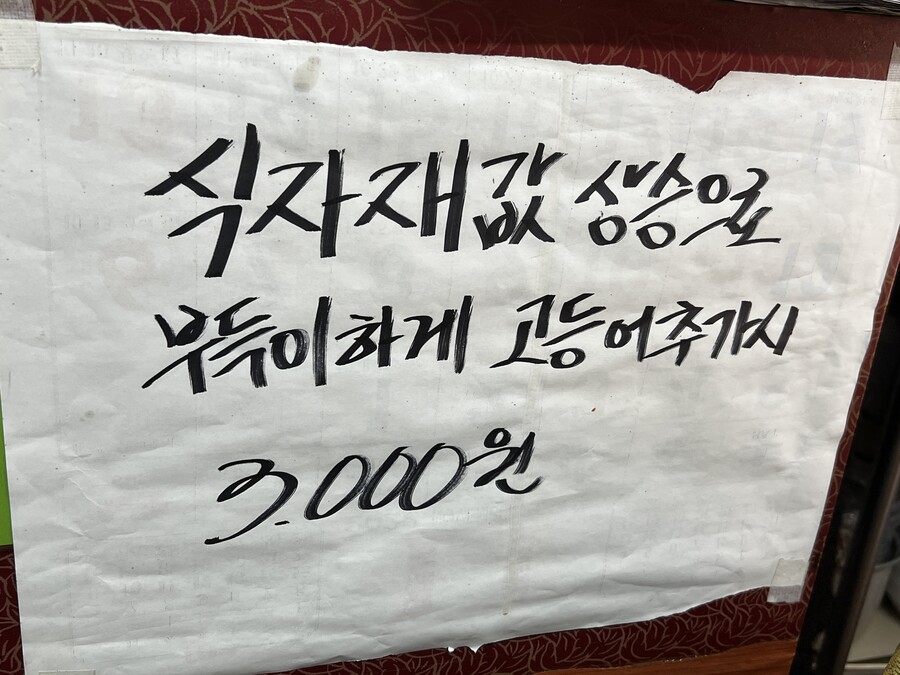 식자재값 상승으로
부득이하게 고등어추가시
3.000원